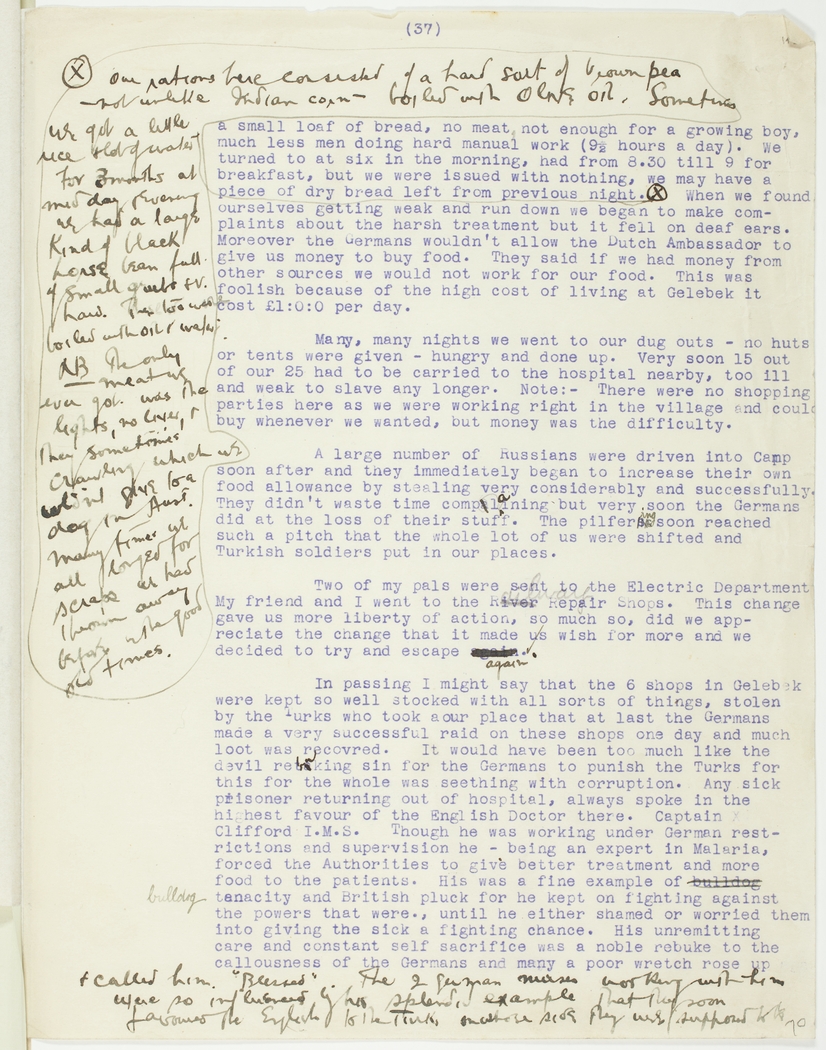 (37)
Ⓧ our rations here consisted of a hard sort of brown pea
- not unlike Indian corn - boiled with Olive Oil. Sometimes
we got a little
rice & lot of water
for 3 months at
mid day & evening
we had a large
kind of black
horse bean full
of small grubs & v.
hard. These too were
boiled with oil & water.
NB The only
meat we
ever got was the
lights, no liver, &
they sometimes
crawling which we
wouldn't give to a
dog in Aust.
Many times we
all longed for
scraps we had
thrown away
before in the good
old times.
a small loaf of bread, no meat, not enough for a growing boy,
much less men doing hard manual work (9½ hours a day). We
turned to at six in the morning, had from 8.30 till 9 for
breakfast, but we were issued with nothing, we may have a
piece of dry bread left from previous night. Ⓧ When we found
ourselves getting weak and run down we began to make com-
plaints about the harsh treatment but it fell on deaf ears.
Moreover the Germans wouldn't allow the Dutch Ambassador to
give us money to buy food. They said if we had money from
other sources we would not work for our food. This was
foolish because of the high cost of living at Gelebek it
cost £1:0:0 per day.
Many, many nights we went to our dug outs - no huts
or tents were given - hungry and done up. Very soon 15 out
of our 25 had to be carried to the hospital nearby, too ill
and weak to slave any longer. Note:- There were no shopping
parties here as we were working right in the village and could
buy whenever we wanted, but money was the difficulty.
A large number of Russians were driven into Camp
soon after and they immediately began to increase their own
food allowance by stealing very considerably and successfully.
They didn't waste time complaining but very soon the Germans
did at the loss of their stuff. The pilfering soon reached
such a pitch that the whole lot of us were shifted and
Turkish soldiers put in our places.
Two of my pals were sent to the Electric Department
My friend and I went to the River Repair Shops. This change
gave us more liberty of action, so much so, did we app-
reciate the change that it made us wish for more and we
decided to try and escape again.
again
In passing I might say that the 6 shops in Gelebek
were kept so well stocked with all sorts of things, stolen
by the Turks who took aour place that at last the Germans
made a very successful raid on these shops one day and much
loot was recovred. It would have been too much like the
devil rebuking sin for the Germans to punish the Turks for
this for the whole was seething with corruption. Any sick
prisoner returning out of hospital, always spoke in the
highest favour of the English Doctor there. Captain
Clifford I.M.S. Though he was working under German rest-
rictions and supervision he - being an expert in Malaria,
forced the Authorities to give better treatment and more
food to the patients. His was a fine example of bulldog
bulldog tenacity and British pluck for he kept on fighting against
the powers that were., until he either shamed or worried them
into giving the sick a fighting chance. His unremitting
care and constant self sacrifice was a noble rebuke to the
callousness of the Germans and many a poor wretch rose up
& called him. "Blessed". The 2 German nurses working with him
were so influenced by his splendid example that they soon
favoured the English to the Turks on whose side they were supposed to be
70